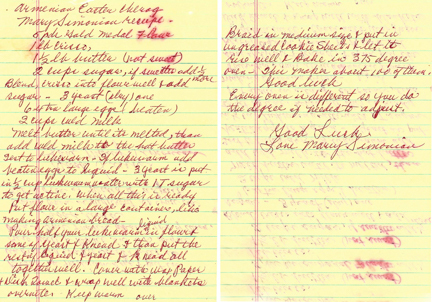 Armenian Easter Cheoag
Mary Simonian Receipe -
5 lb Gold Medal Flour
1 lb Crisco,
1 1/2 lb butter (not sweet)
2 cups sugar, if sweeter add 1/2 more
Blend crisco into flour well & add
sugar - 3 yeast (dry) one
6 extra large eggs (beaten)
2 cups cold milk
Melt butter until its melted, than
add cold milk to the hot butter
Test to lukewarm - If lukewarm add
beaten eggs to liquid - 3 yeast is put
in 1/2 cup lukewarm water with 1 T sugar
to get active. When all this is ready
Put flour in a large container, like
making Armenian bread -
Pour half your lukewarm liquid in flour &
some of yeast & Knead & than put the
rest of liquid & yeast & knead all
together well. Cover with wax Paper
& Dish towel & wrap well with blankets
overnite. Keep warm
over
Braid in medium size & put in
ungreased cookie sheets & let it
rise well & Bake in 375 degree
oven - This makes about 100 of them,
Good luck
Every oven is different so you do
the degree if need to adjust.
Good Luck
Love Mary Simonian